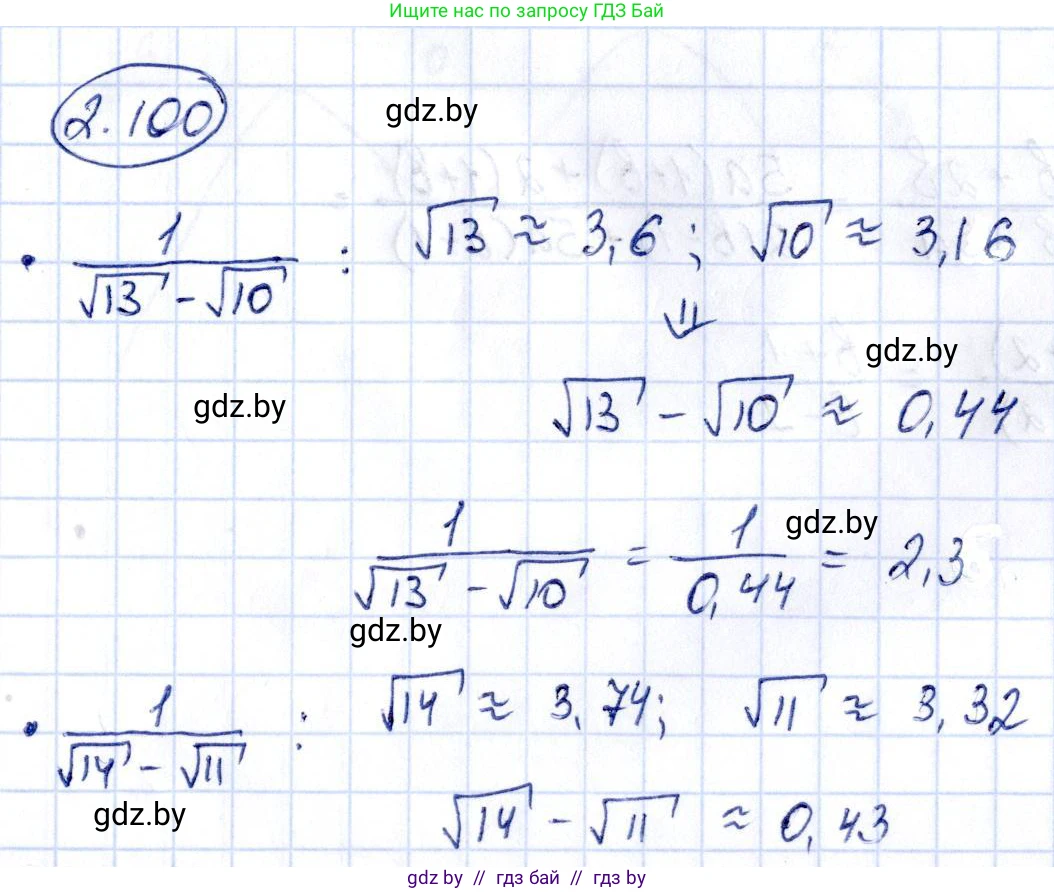 Ищите нас по запросу ГДЗ Бай
2.100
gdz.by
• 1/(√13 - √10) : √13 ≈ 3,6; √10 ≈ 3,16
⇓
gdz.by
gdz.by
√13 - √10 ≈ 0,44
gdz.by
1/(√13 - √10) = 1/0,44 = 2,3
gdz.by
• 1/(√14 - √11) : √14 ≈ 3,74; √11 ≈ 3,32
gdz.by
√14 - √11 ≈ 0,43
gdz.by // гдз бай // гдз by